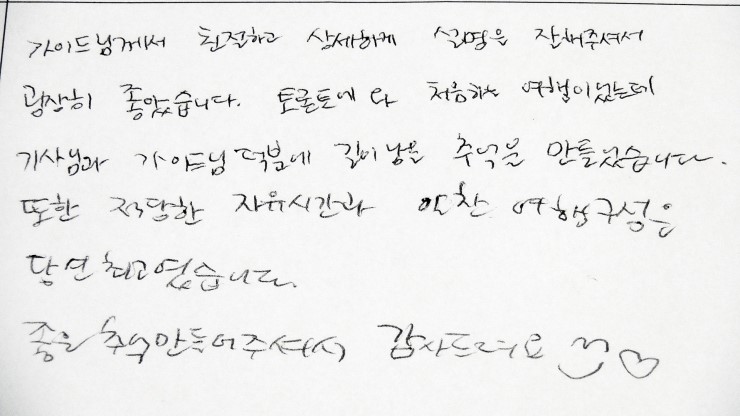 가이드님께서 친절하고 상세하게 설명을 잘해주셔서
굉장히 좋았습니다. 토론토에 와 처음하는 여행이었는데
기사님과 가이드님 덕분에 길이남을 추억을 만들었습니다.
또한 적당한 자유시간과 알찬 여행구성은
당연 최고였습니다.
좋은 추억만들어주셔서 감사드려요